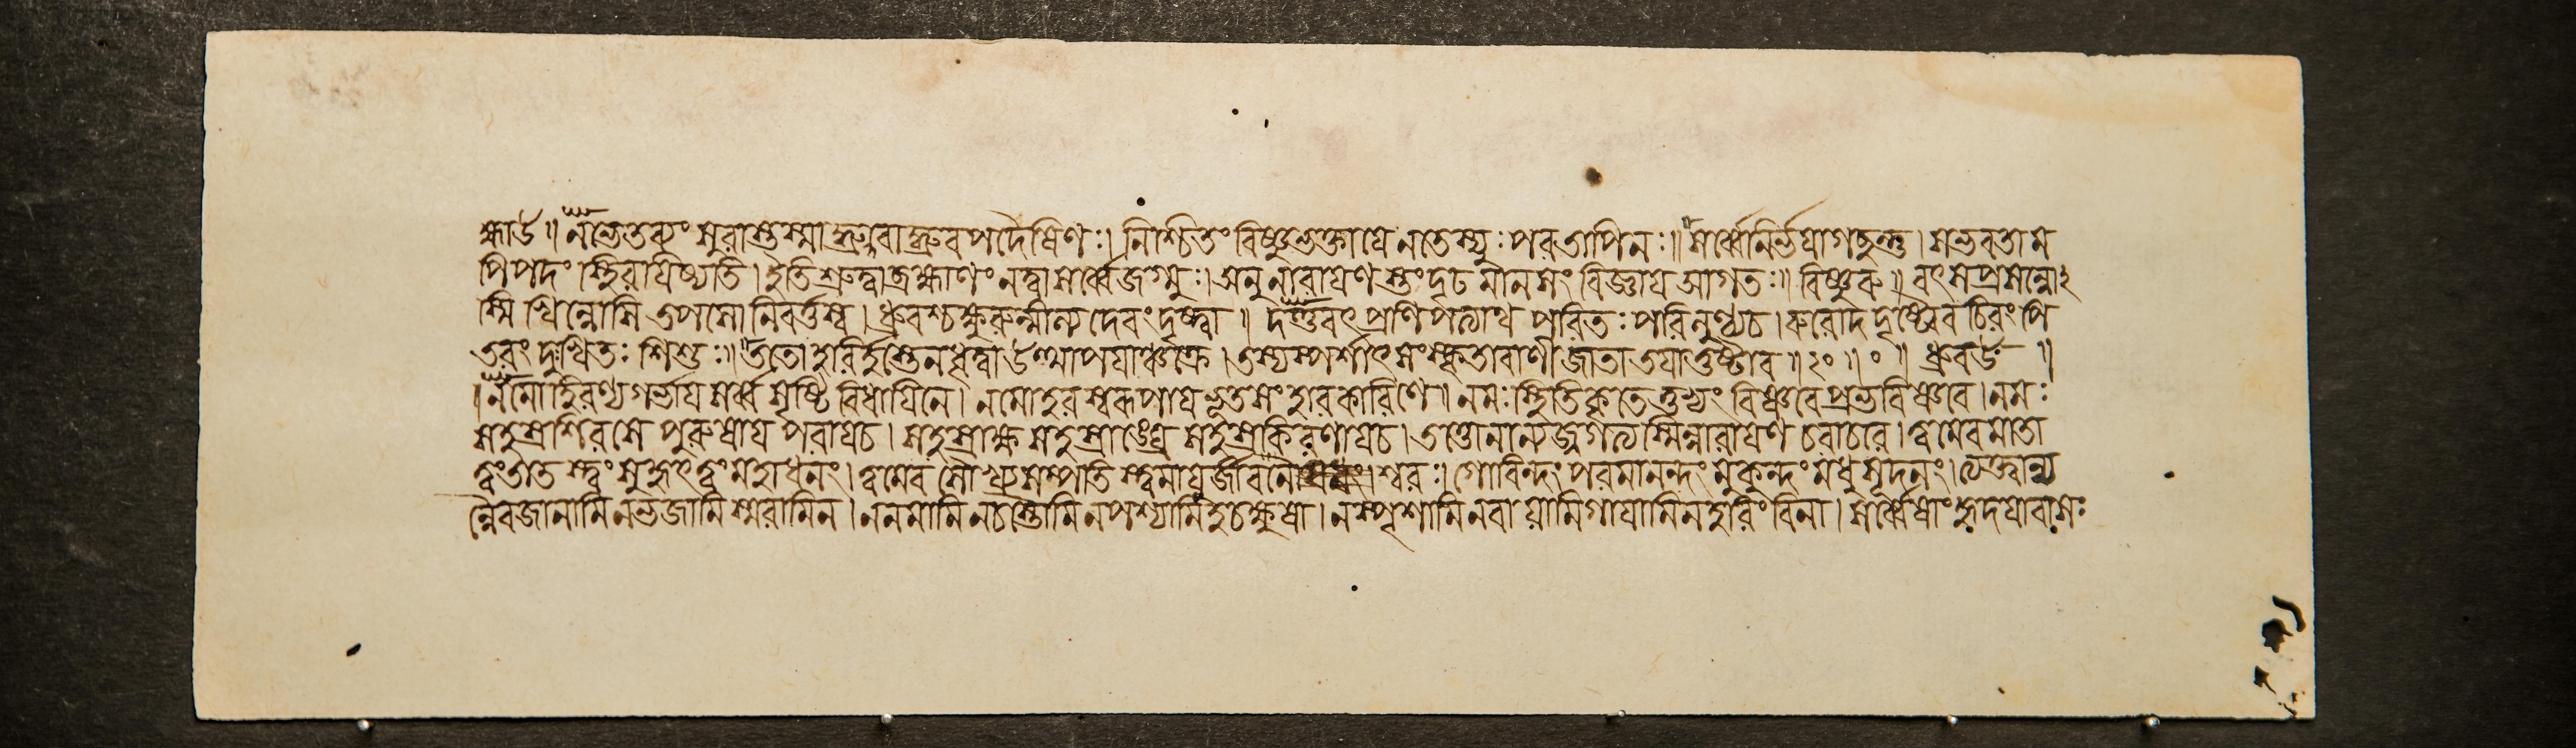 হ্মাউ॥ নভেতব্যং সুরাস্তস্মাদ্ধ্রুবাদ্ধ্রুবপদৈষিণঃ। নিশ্চিতং বিষ্ণুভক্তায়ে নতেস্যুঃ পরতাপিনঃ॥ সর্ব্বেনির্ভয়াগচ্ছন্তু। সভবতাম
পিপদং স্থিরয়িষ্যতি। ইতি শ্রুত্বা ব্রহ্মাণং নত্বা সর্ব্বে জগ্মুঃ। অনুনারায়ণস্তং দৃঢমানসং বিজ্ঞায় আগতঃ॥ বিষ্ণুরু॥ বৎসপ্রসন্নোঽ
স্মি খিন্নোসি তপসো নিবর্ত্তস্ব। ধ্রুবশ্চক্ষুরুন্মীল্য দেবং দৃষ্ট্বা॥ দণ্ডবৎ প্রণিপত্যাথ পরিতঃ পরিলুণ্ঠ্যচ। রুরোদ দৃষ্ট্বৈব চিরং পি
তরং দুঃখিতঃ শিশুঃ॥ ততো হরির্হস্তেন ধৃত্বা উত্থাপয়াঞ্চক্রে। তস্যস্পর্শাৎ সংস্কৃতাবাণী জাতা তয়াতুষ্টাব॥২০॥০॥ ধ্রুবউ॥
।নমো হিরণ্যগর্ভায় সর্ব্ব সৃষ্টি বিধায়িনে। নমোহরস্বরূপায় ভূতসংহারকারিণে॥ নমঃ স্থিতিকৃতে তুভ্যং বিষ্ণবে প্রভবিষ্ণবে। নমঃ
সহস্রশিরসে পুরুষায় পরায়চ। সহস্রাক্ষ সহস্রাঙ্ঘ্রে সহস্রকিরণায়চ। ত্বত্তোনান্যজ্জগত্যস্মিন্নারায়ণ চরাচর। ত্বমেবমাতা
ত্বংতাত স্ত্বং সুহৃৎ ত্বং মহাধনং। ত্বমেব সৌখ্যসম্পত্তি স্ত্বমায়ুর্জীবনেশ্বরঃ। গোবিন্দং পরমানন্দং মুকুন্দং মধুসূদনং। ত্যক্ত্বান্য
ন্নৈবজানামি নভজামি স্মরামিন। ননমামি নচস্তৌমি নপশ্যামিহ চক্ষুষা। নস্পৃশামি গায়ামিন হরিং বিনা। সর্ব্বেষাং হৃদয়াবাসঃ